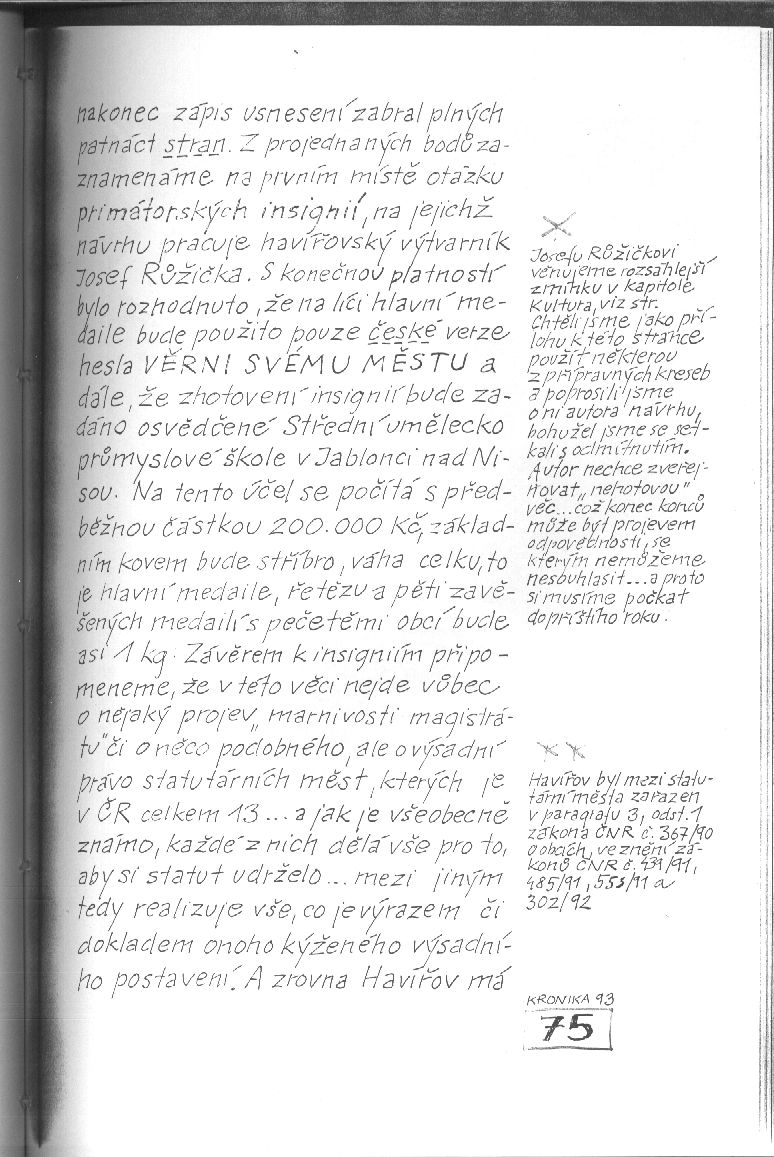 nakonec zápis usnesení zabral plných
patnáct stran. Z projednaných bodů za-
znamenáme na prvním místě otázku
primátorských insignií, na jejichž
návrhu pracuje havířovský výtvarník
Josef Růžička. S konečnou platností
bylo rozhodnuto, že na líci hlavní me-
daile bude použito pouze české verze
hesla VĚRNI SVÉMU MĚSTU a
dále, že zhotovení insignií bude za-
dáno osvědčené Střední umělecko
průmyslové škole v Jablonci nad Ni-
sou. Na tento účel se počítá s před-
běžnou částkou 200.000 Kč, základ-
ním kovem bude stříbro, váha celku, to
je hlavní medaile, řetězu a pěti zavě-
šených medailí s pečetěmi obcí bude
asi 1 kg. Závěrem k insigniím připo-
meneme, že v této věci nejde vůbec
o nějaký projev „marnivosti magistrá-
tu" či o něco podobného, ale o výsadní
právo statutárních měst, kterých je
v ČR celkem 13... a jak je všeobecně
známo, každé z nich dělá vše pro to,
aby si statut udrželo... mezi jiným
tedy realizuje vše, co je výrazem či
dokladem onoho kýženého výsadní-
ho postavení. A zrovna Havířov má
Josefu Růžičkovi
věnujeme rozsáhlejší
zmínku v kapitole
Kultura, viz str.
Chtěli jsme jako pří-
lohu k této stránce
použít některou
z přípravných kreseb
a poprosili jsme
o ni autora návrhu,
bohužel jsme se set-
kali s odmítnutím.
Autor nechce zveřej-
ňovat „nehotovou"
věc... což konec konců
může být projevem
odpovědnosti, se
kterým nemůžeme
nesouhlasit... a proto
si musíme počkat
do příštího roku.
Havířov byl mezi statu-
tární města zařazen
v paragrafu 3, odst. 1
zákona ČNR č. 367/90
o obcích, ve znění zá-
konů ČNR č. 439/91,
485/91, 553/91 a
302/92
KRONIKA 93
75